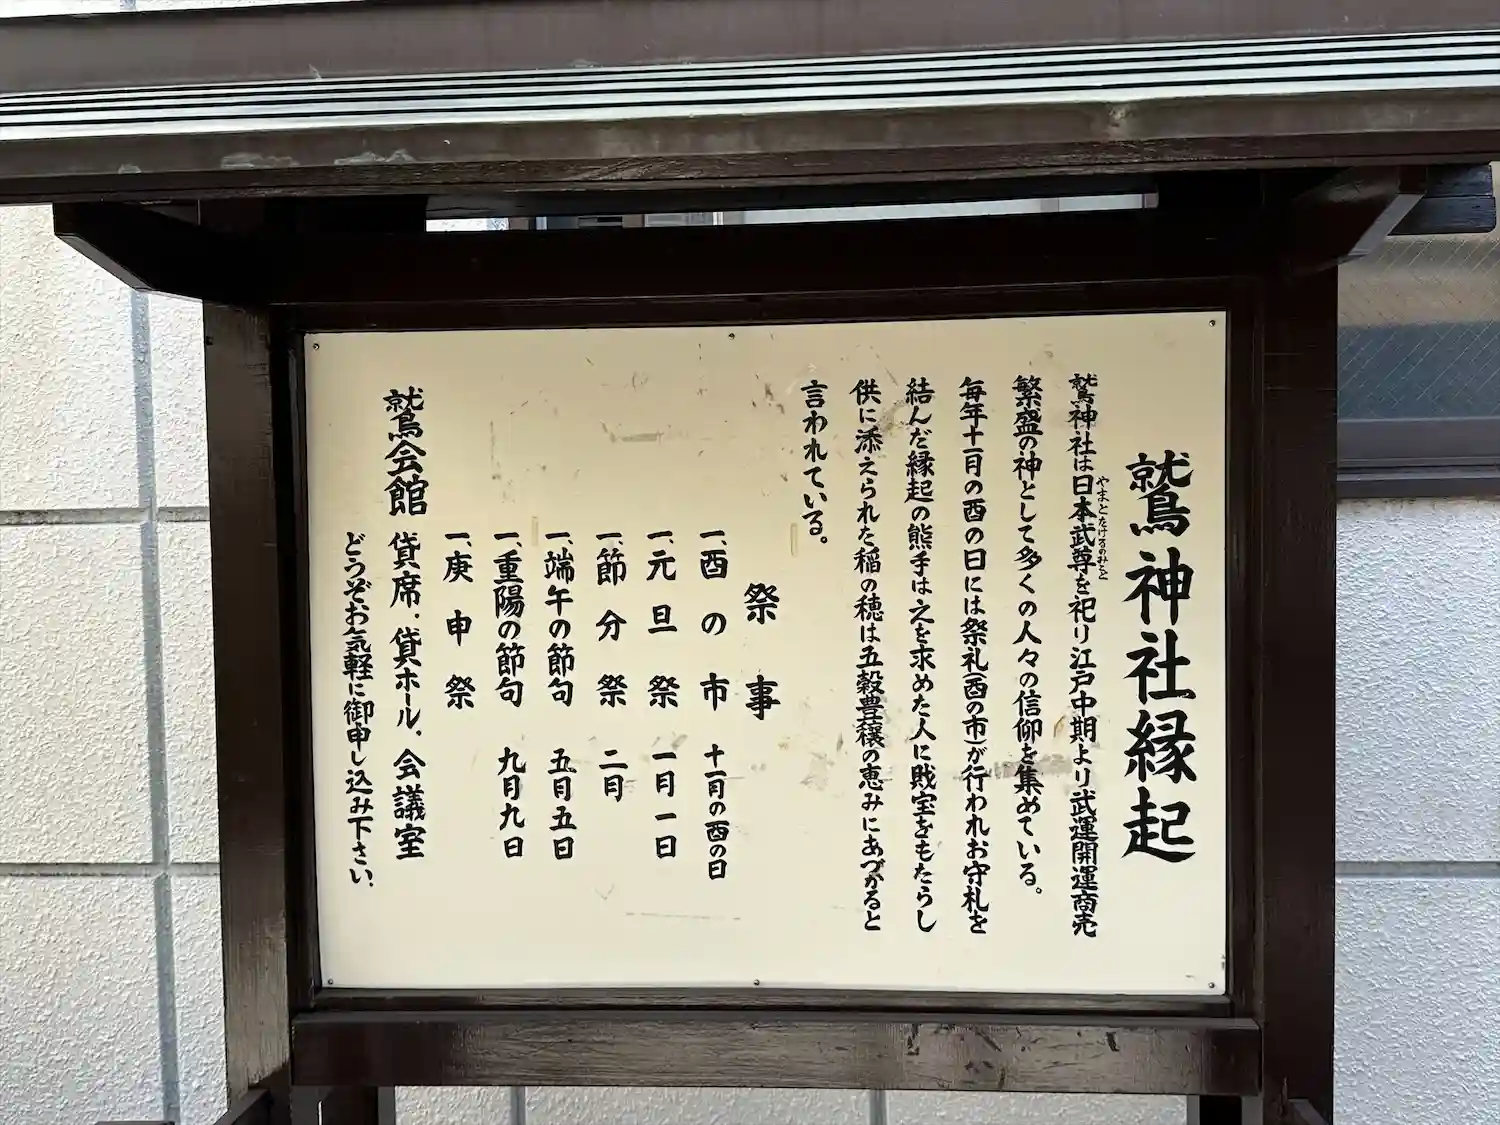 鷲神社縁起
鷲神社は日本武尊を祀り江戸中期より武運開運商売
やまとたけるのみこと
繁盛の神として多くの人々の信仰を集めている。
毎年十一月の酉の日には祭礼(酉の市)が行われお守札を
結んだ縁起の熊手は之を求めた人に財宝をもたらし
供に添えられた稲の穂は五穀豊穣の恵みにあづかると
言われている。
祭事
一、酉の市 十一月の酉の日
一、元旦祭 一月一日
一、節分祭 二月
一、端午の節句 五月五日
一、重陽の節句 九月九日
一、庚申祭
鷲会館 貸席．貸ホール．会議室
どうぞお気軽に御申し込み下さい．